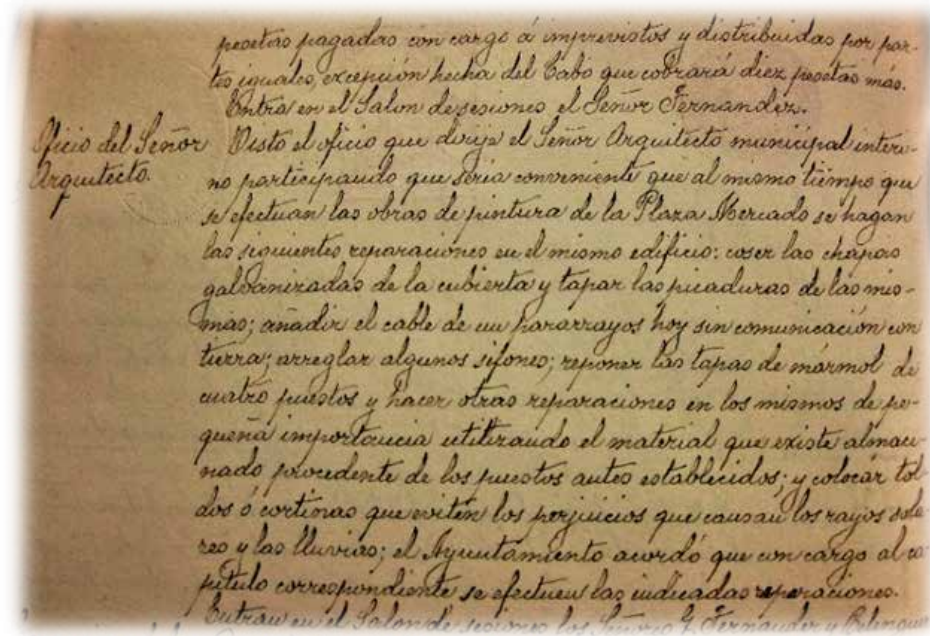 pesetas pagadas con cargo á imprevistos y distribuidas por par-
tes iguales, excepción hecha del Cabo que cobrará diez pesetas más.
Entra en el Salon de sesiones el Señor Fernandez.
Oficio del Señor Arquitecto.
Visto el oficio que dirije el Señor Arquitecto municipal interi-
no participando que sería conveniente que al mismo tiempo que
se efectuan las obras de pintura de la Plaza Mercado se hagan
las siguientes reparaciones en el mismo edificio: coser las chapas
galvanizadas de la cubierta y tapar las picaduras de las mis-
mas; añadir el cable de un pararrayos hoy sin comunicación con
tierra; arreglar algunos sifones; reponer las tapas de mármol de
cuatro puestos y hacer otras reparaciones en los mismos de pe-
queña importancia utilizando el material que existe almace-
nado procedente de los puestos antes establecidos; y colocar tol-
dos ó cortinas que eviten los perjuicios que causan los rayos sola-
res y las lluvias; el Ayuntamiento acordó que con cargo al ca-
pítulo correspondiente se efectuen las indicadas reparaciones.
Entran en el Salon de sesiones los Señores G. Fernandez y